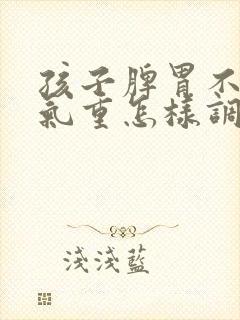 孩子脾胃不
氣重怎樣調
淺淺藍